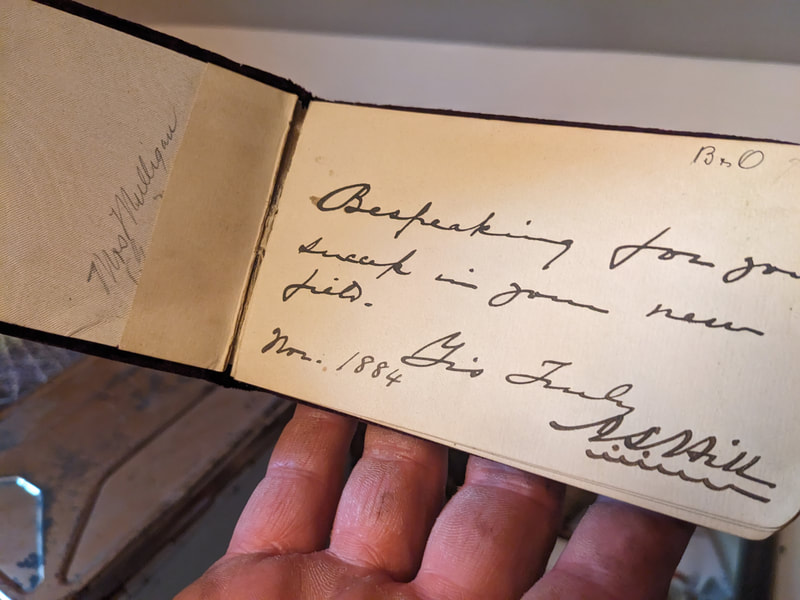 Mrs Mulligan
B & O
Bespeaking for you
success in your new
field.
Yrs Truly
Nov. 1884
Hill